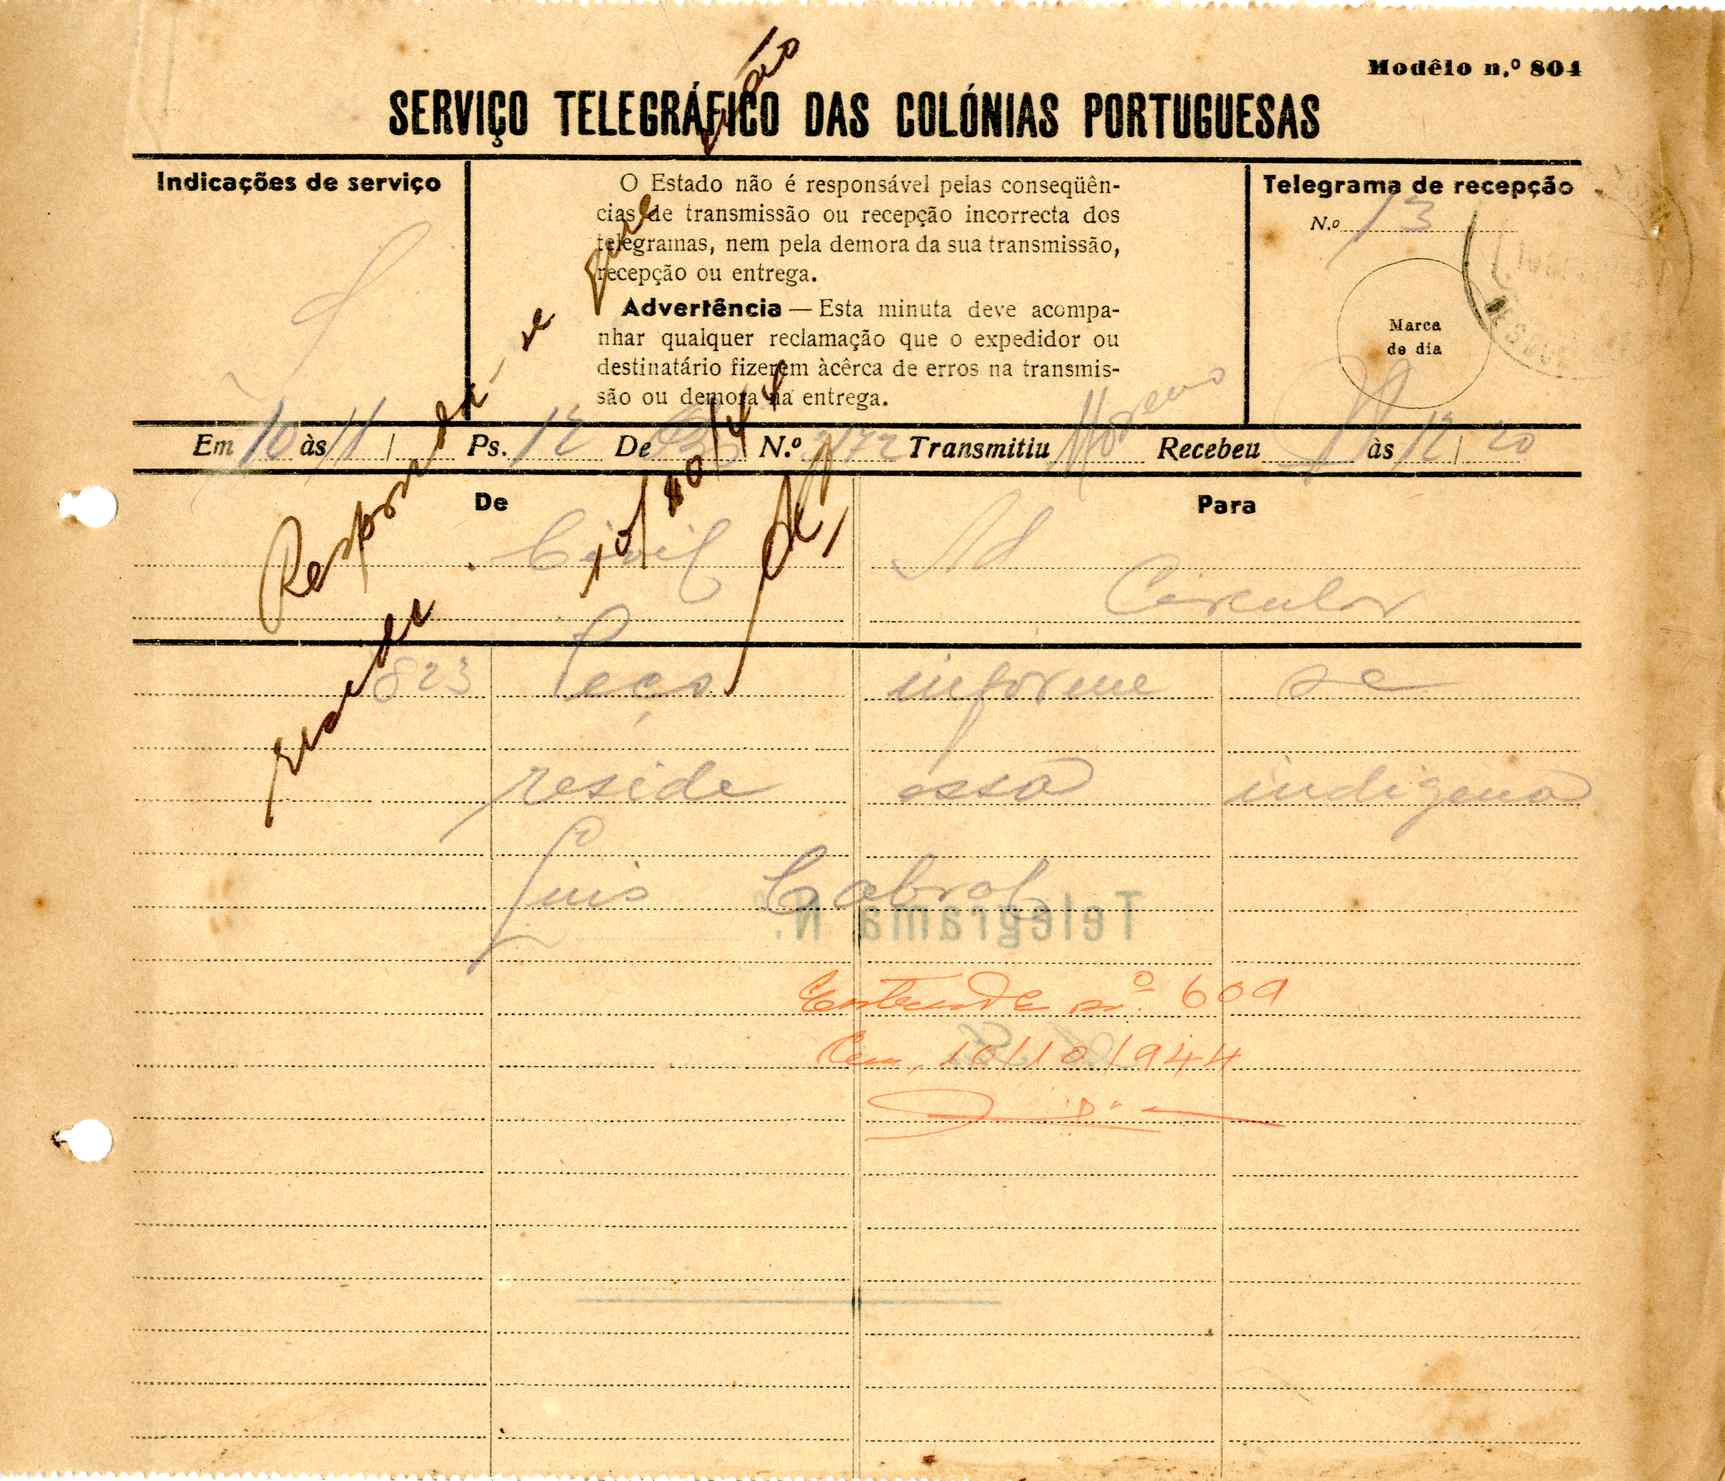 Modêlo n.º 804
SERVIÇO TELEGRÁFICO DAS COLÓNIAS PORTUGUESAS
Indicações de serviço
O Estado não é responsável pelas conseqüên-
cias de transmissão ou recepção incorrecta dos
telegramas, nem pela demora da sua transmissão,
recepção ou entrega.
Advertência — Esta minuta deve acompa-
nhar qualquer reclamação que o expedidor ou
destinatário fizerem àcêrca de erros na transmis-
são ou demora na entrega.
Telegrama de recepção
N.o 13
Marca
de dia
Em 10 às 11 Ps. 12 De N.º 2172 Transmitiu Moreno Recebeu às 12 20
De
Para
Civil
Circular
Responda-se que não
reside
10/10/44
823 Peço informe se
reside essa indigena
Luis Cabral
Telegrama N.º
Entrada nº 609
Em, 10/10/944